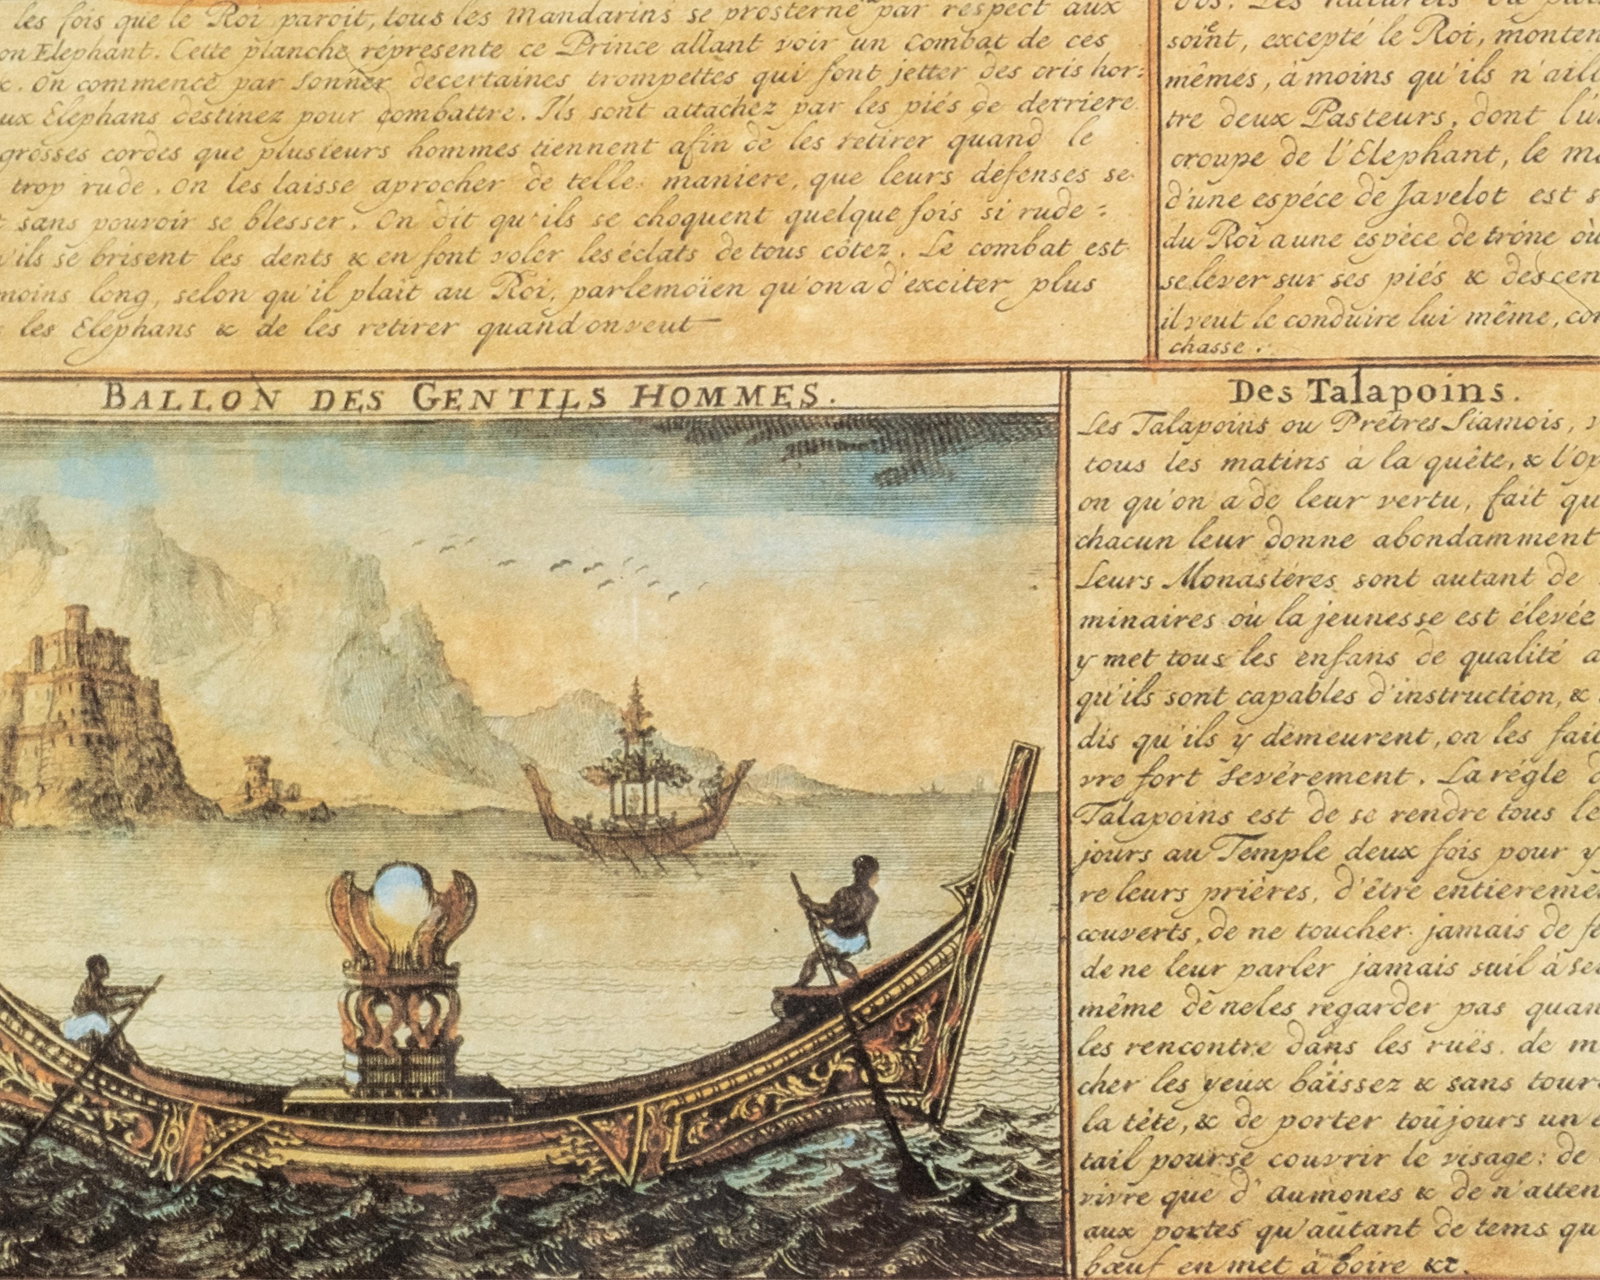 les fois que le Roi paroit, tous les Mandarins se prosterne par respect aux
on Elephant. Cette planche répresente ce Prince allant voir un Combat de ces
On commence par sonner decertaines trompettes qui font jetter des cris hor:
ux Elephans destinez pour combattre. Ils sont attachez par les piés de derriere
grosses cordes que plusieurs hommes tiennent afin de les retirer quand le
trop rude. On les laisse aprocher de telle maniere, que leurs défenses se
sans pouvoir se blesser. On dit qu'ils se choquent quelque fois si rude =
'ils se brisent les dents & en font voler les éclats de tous côtez. Le combat est
moins long, selon qu'il plait au Roi, parlemoïen qu'on a d'exciter plus
les Elephans & de les retirer quand on veut
soint, excepté le Roi, monten
mêmes, à moins qu'ils n'aill
tre deux Pasteurs, dont l'u
croupe de l'Elephant, le m
d'une espéce de Javelot est s
du Roi a une espéce de trône où
se léver sur ses piés & descen
il veut le conduire lui même, co
chasse.
BALLON DES GENTILS HOMMES.
Des Talapoins.
Les Talapoins ou Prêtres Siamois, v
tous les matins à la quête, & l'op
on qu'on a de leur vertu, fait qu
chacun leur donne abondamment
Leurs Monastéres sont autant de
minaires où la jeunesse est élevée
y met tous les enfans de qualité a
qu'ils sont capables d'instruction, &
dis qu'ils y demeurent, on les fait
vre fort sevérement. La régle d
Talapoins est de se rendre tous le
jours au Temple deux fois pour y
re leurs prières, d'être entiereme
couverts, de ne toucher jamais de fe
de ne leur parler jamais suil à se
même de neles regarder pas quan
les rencontre dans les ruës. de m
cher les yeux baissez & sans tour
la tête, & de porter toûjours un é
tail pourse couvrir le visage: de
vivre que d'aumones & de n'atten
aux portes qu'autant de tems qu
bœuf en met à boire &c.